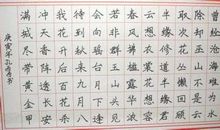 曾经沧海难为水
除却巫山不是云
取次花丛懒回顾
半缘修道半缘君
云想衣裳花想容
春风拂槛露华浓
若非群玉山头见
会向瑶台月下逢
待到秋来九月八
我花开后百花杀
冲天香阵透长安
满城尽带黄金甲
庚寅年孔书